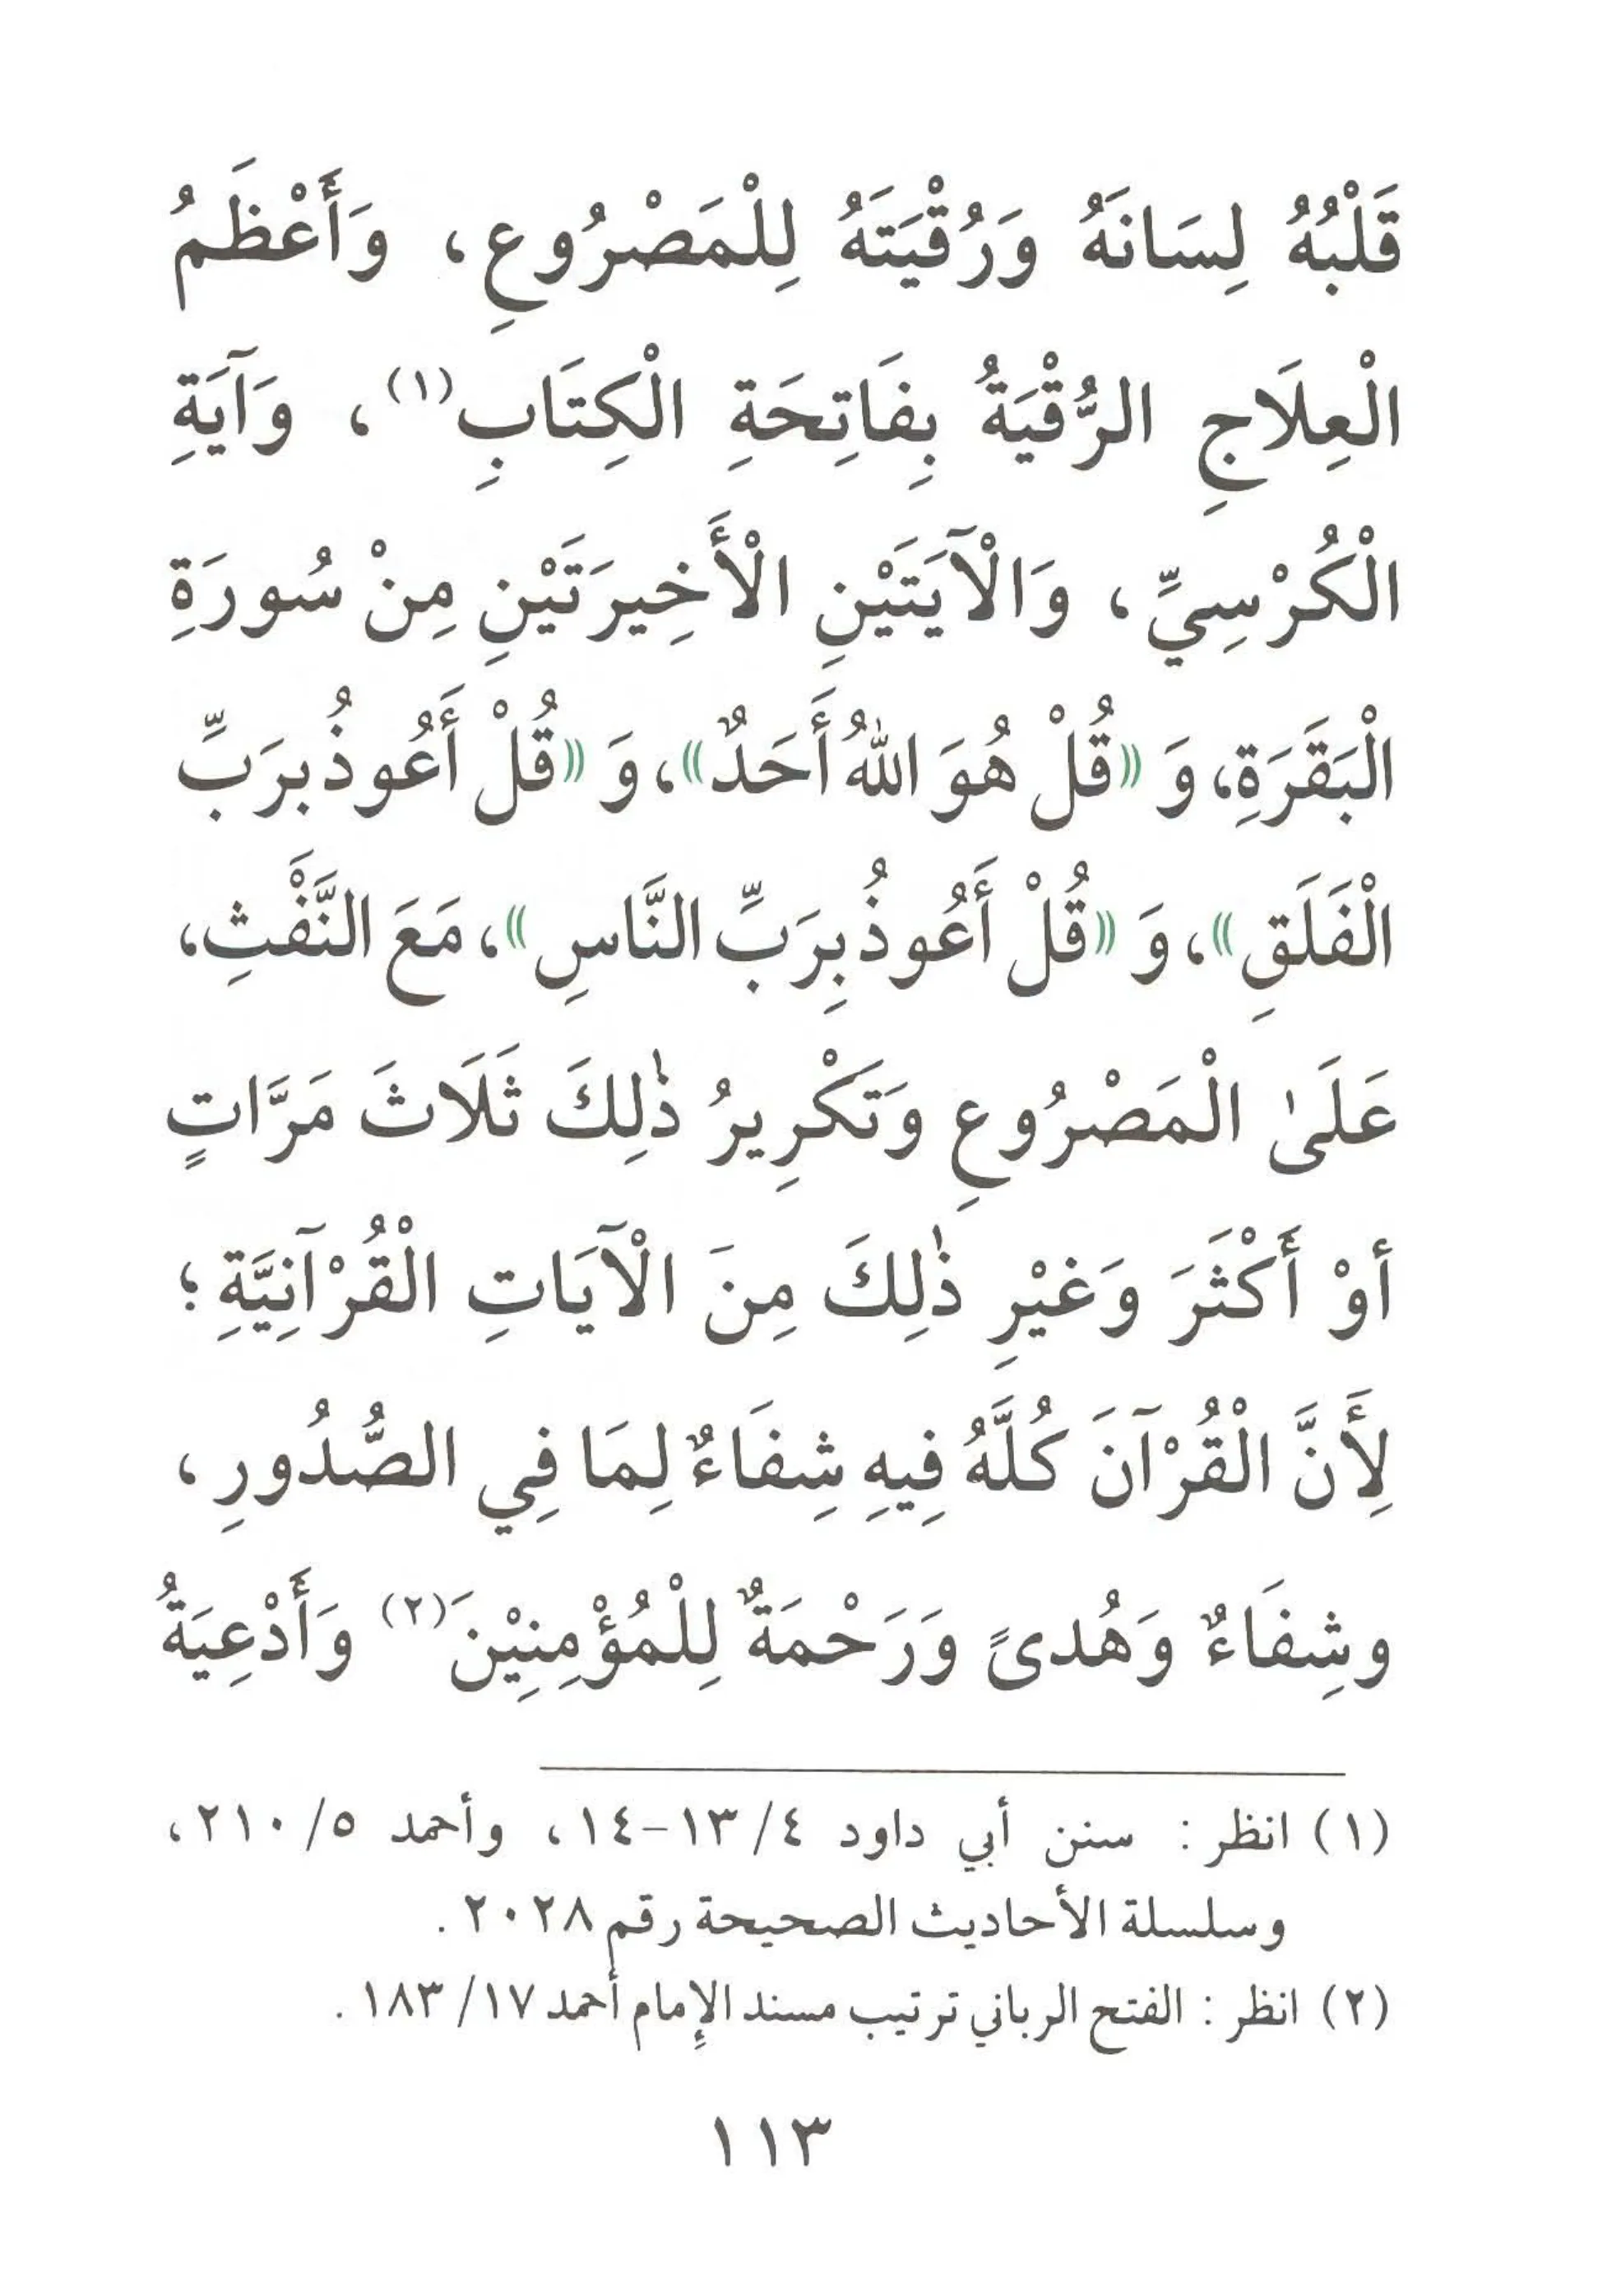 قَلْبُهُ لِسَانَهُ وَرُقْيَتَهُ لِلْمَصْرُوعِ، وَأَعْظَمُ
الْعِلَاجِ الرُّقْيَةُ بِفَاتِحَةِ الْكِتَابِ(١)، وَآيَةِ
الْكُرْسِيِّ، وَالْآيَتَيْنِ الْأَخِيرَتَيْنِ مِنْ سُورَةِ
الْبَقَرَةِ، وَ «قُلْ هُوَ اللهُ أَحَدٌ»، وَ «قُلْ أَعُوذُ بِرَبِّ
الْفَلَقِ»، وَ «قُلْ أَعُوذُ بِرَبِّ النَّاسِ»، مَعَ النَّفْثِ،
عَلَىٰ الْمَصْرُوعِ وَتَكْرِيرُ ذٰلِكَ ثَلَاثَ مَرَّاتٍ
أوْ أَكْثَرَ وَغَيْرِ ذٰلِكَ مِنَ الْآيَاتِ الْقُرْآنِيَّةِ؛
لِأَنَّ الْقُرْآنَ كُلَّهُ فِيهِ شِفَاءٌ لِمَا فِي الصُّدُورِ،
وشِفَاءٌ وَهُدىً وَرَحْمَةٌ لِلْمُؤْمِنِيْنَ(٢) وَأَدْعِيَةُ
(١) انظر : سنن أبي داود ٤/ ١٣-١٤، وأحمد ٥/ ٢١٠،
وسلسلة الأحاديث الصحيحة رقم ٢٠٢٨.
(٢) انظر : الفتح الرباني ترتيب مسند الإمام أحمد ١٧/ ١٨٣.
١١٣